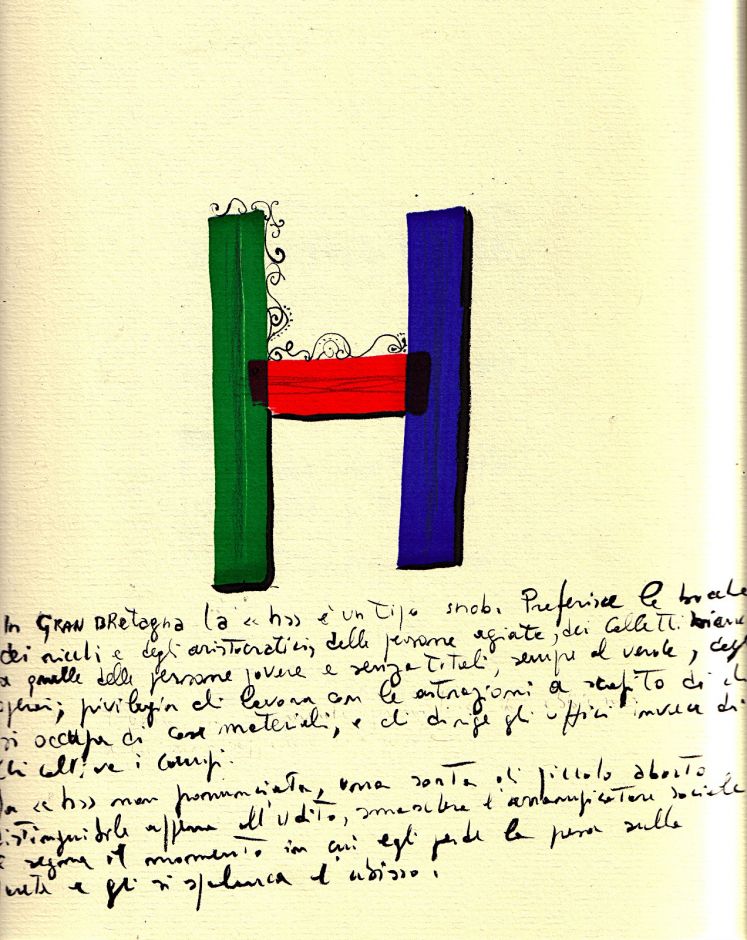 H
In GRAN BRetagna la «h» è un tipo snob. Preferisce le bocche
dei ricchi e degli aristocratici, delle persone agiate, dei colletti bianchi
a quelle delle persone povere e senza titoli, sempre al verde, degli
operai; privilegia chi lavora con le astrazioni a scapito di chi
si occupa di cose materiali, e chi dirige gli uffici invece di
chi coltiva i campi.
la «h» non pronunciata, una sorta di piccolo aborto
distinguibile appena all'udito, smaschera l'arrampicatore sociale
e segna il momento in cui egli perde la presa sulla
vetta e gli si spalanca l'abisso.